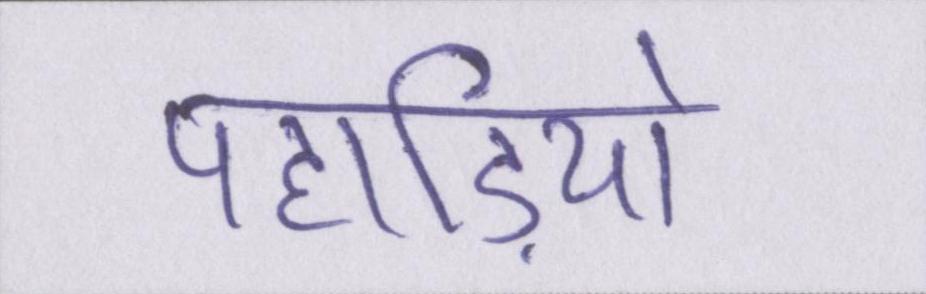 पहाड़ियो